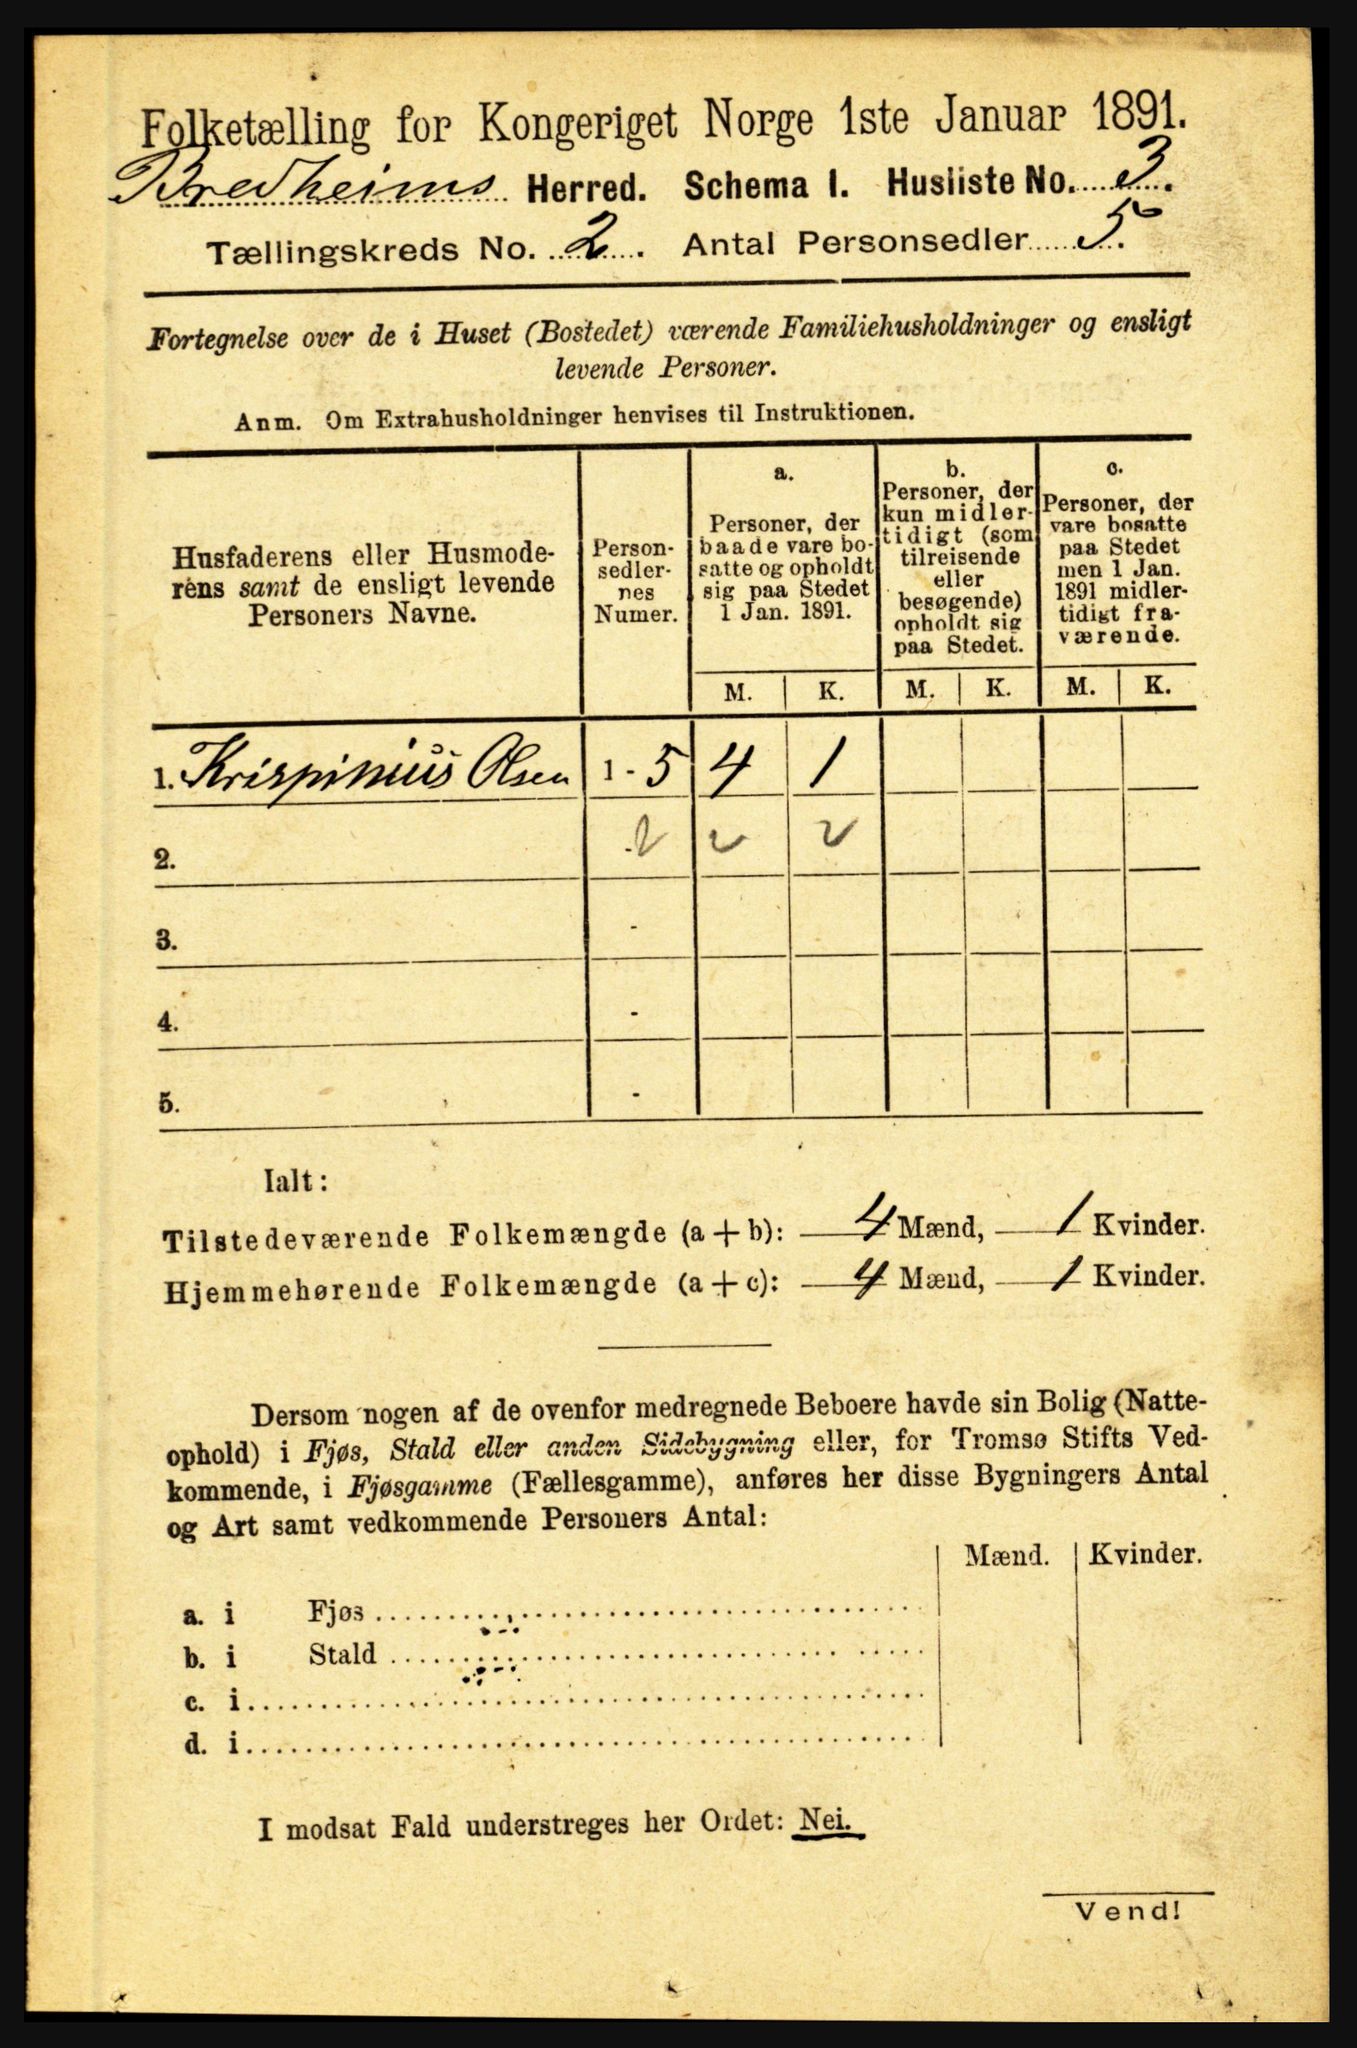 Folketælling for Kongeriget Norge 1ste Januar 1891.
Bredheims Herred. Schema I. Husliste No. 3.
Tællingskreds No. 2. Antal Personsedler 5.
Fortegnelse over de i Huset (Bostedet) værende Familiehusholdninger og ensligt
levende Personer.
Anm. Om Extrahusholdninger henvises til Instruktionen.
Husfaderens eller Husmode-
rens samt de ensligt levende
Personers Navne.
Person-
sedler-
nes
Numer.
a.
Personer, der
baade vare bo-
satte og opholdt
sig paa Stedet
1 Jan. 1891.
b.
Personer, der
kun midler-
tidigt (som
tilreisende
eller
besøgende)
opholdt sig
paa Stedet.
c.
Personer, der
vare bosatte
paa Stedet
men 1 Jan.
1891 midler-
tidigt fra-
værende.
M. K. M. K. M. K.
1. Krispinius Olsen 1 - 5 4 1
2.
3. -
4. -
5. -
Ialt:
Tilstedeværende Folkemængde (a + b): 4 Mænd, 1 Kvinder.
Hjemmehørende Folkemængde (a + c): 4 Mænd, 1 Kvinder.
Dersom nogen af de ovenfor medregnede Beboere havde sin Bolig (Natte-
ophold) i Fjøs, Stald eller anden Sidebygning eller, for Tromsø Stifts Ved-
kommende, i Fjøsgamme (Fællesgamme), anføres her disse Bygningers Antal
og Art samt vedkommende Personers Antal:
Mænd. Kvinder.
a. i Fjøs
b. i Stald
c. i
d. i
I modsat Fald understreges her Ordet: Nei.
Vend!